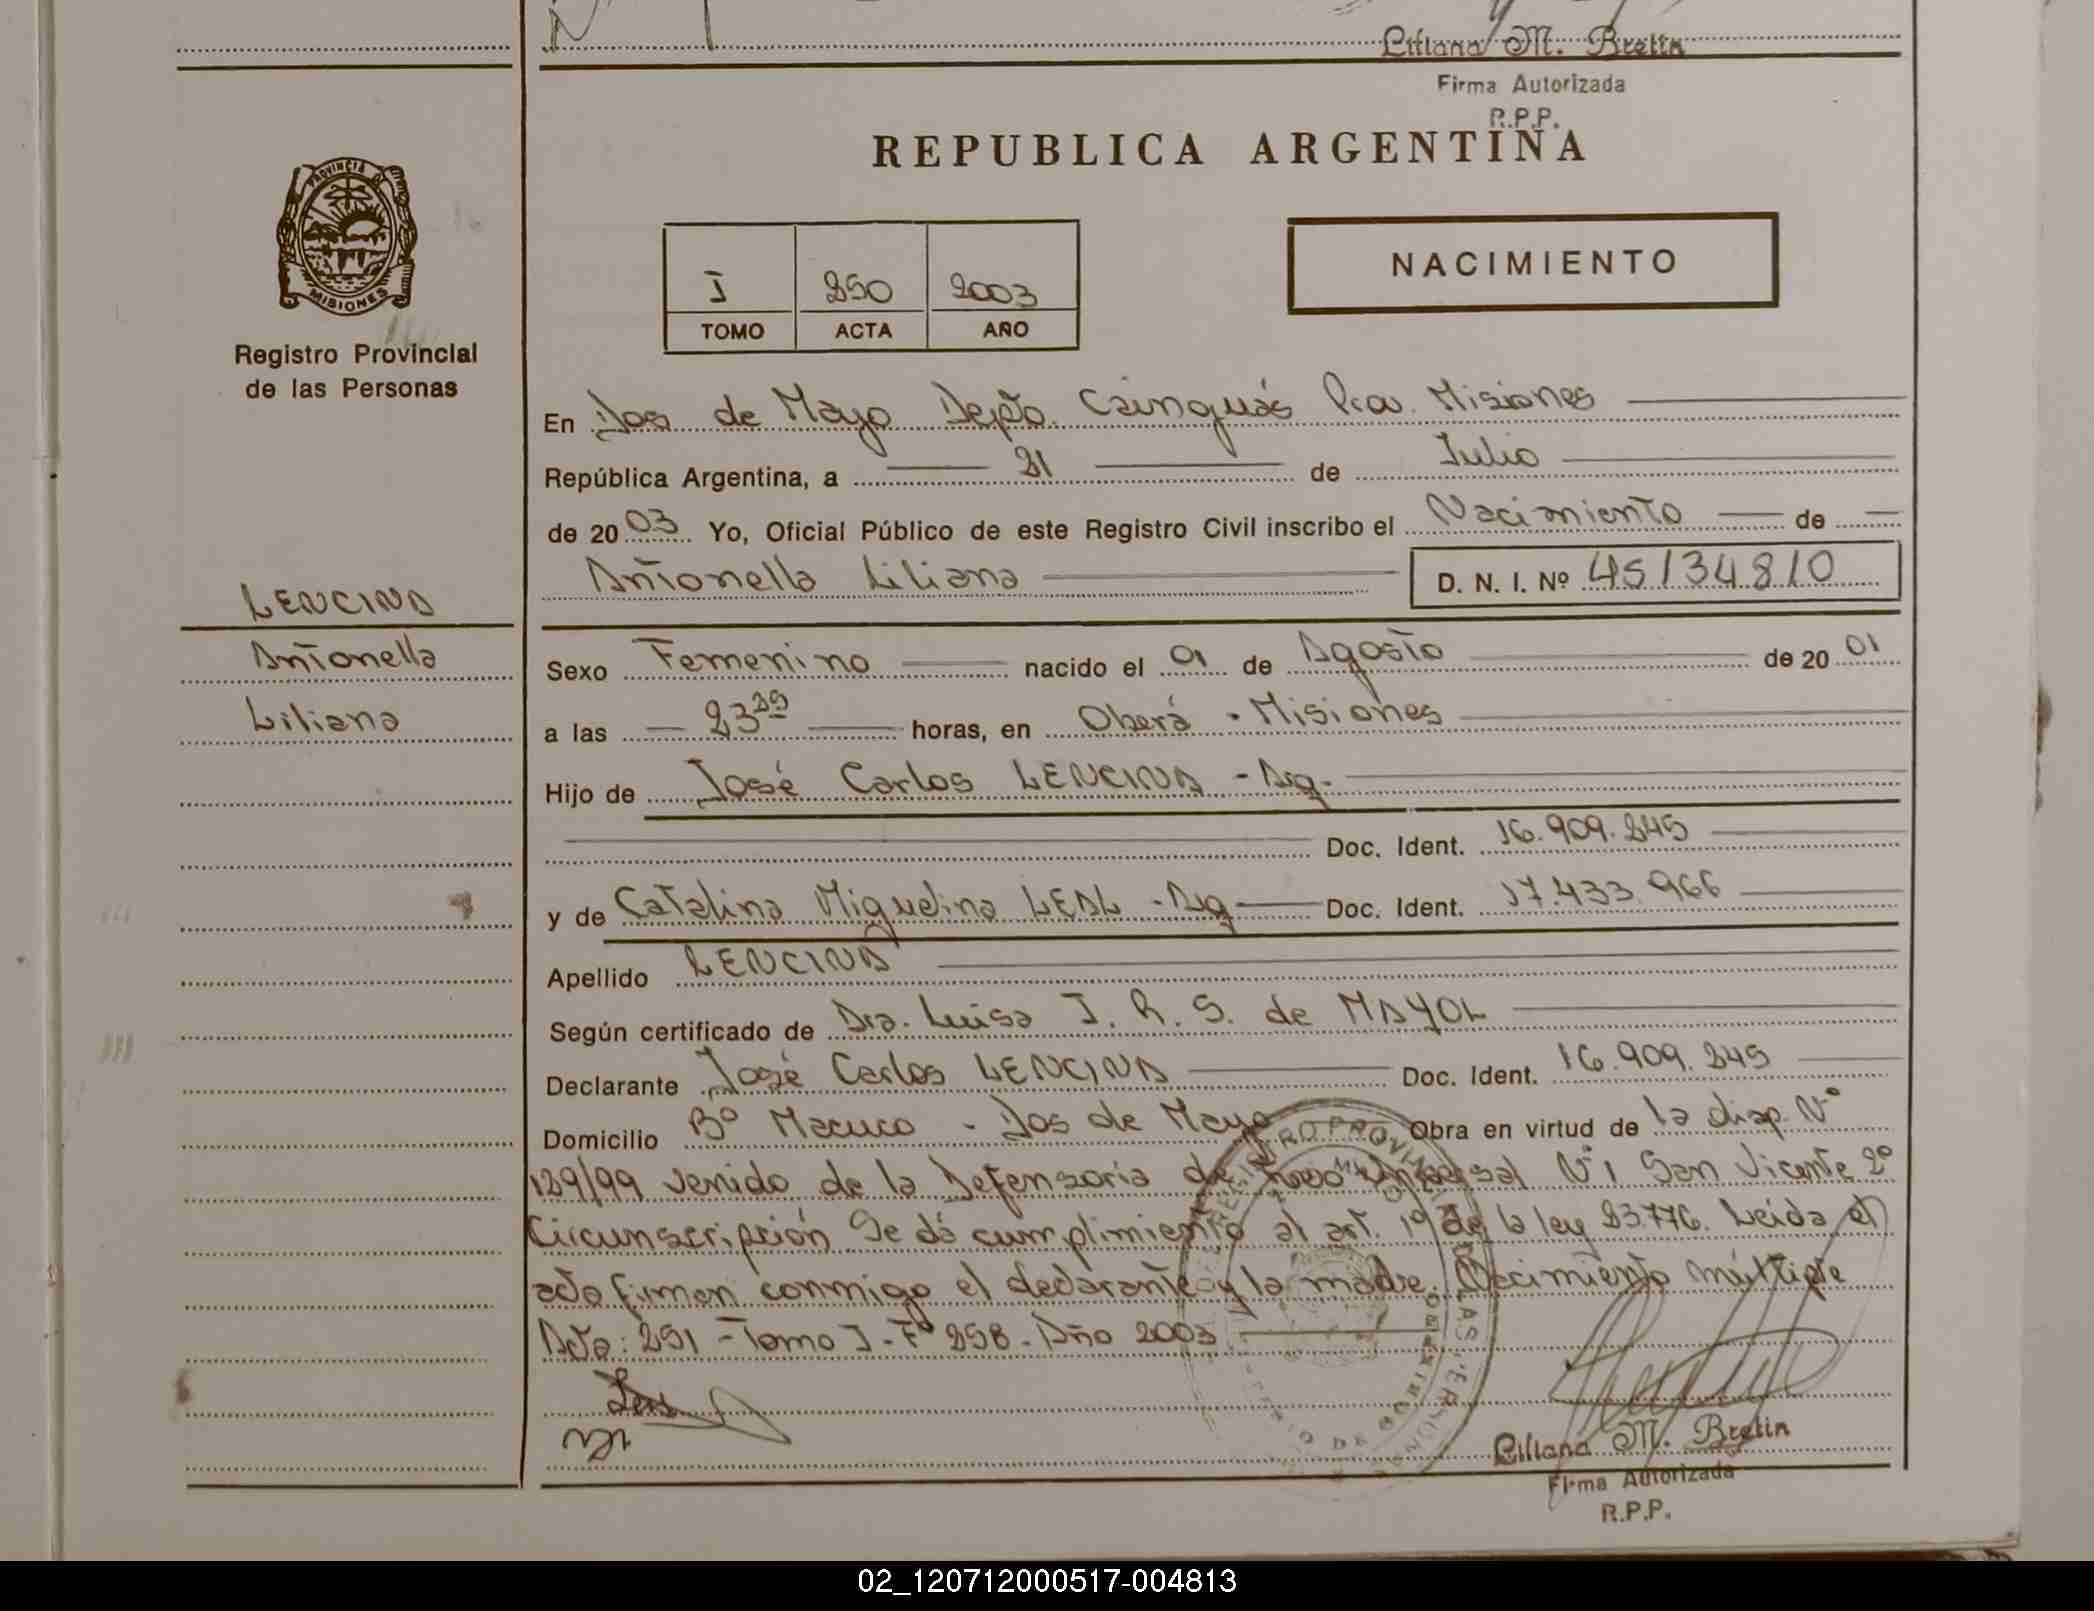 Liliana M. Bretin
Firma Autorizada
R.P.P.
REPUBLICA ARGENTINA
PROVINCIA DE
MISIONES
Registro Provincial
de las Personas
I 250 2003
TOMO ACTA AÑO
NACIMIENTO
En Dos de Mayo Depto. Cainguás Prov. Misiones
República Argentina, a 21 de Julio
de 2003 Yo, Oficial Público de este Registro Civil inscribo el Nacimiento de
Antonella Liliana D. N. I. Nº 45134810
LENCINA
Antonella
Liliana
Sexo Femenino nacido el 01 de Agosto de 2001
a las 23 horas, en Oberá - Misiones
Hijo de José Carlos LENCINA - Arg.
Doc. Ident. 16.909.245
y de Catalina Miguelina LEAL - Arg Doc. Ident. 17.433.966
Apellido LENCINA
Según certificado de Dra. Luisa J. R. S. de MAYOL
Declarante José Carlos LENCINA Doc. Ident. 16.909.245
Domicilio Bº Macuco - Dos de Mayo Obra en virtud de la disp. Nº
129/99 venido de la Defensoria de Nº 1 San Vicente 2º
Circunscripción Se dá cumplimiento al art. 1º de la ley 23.776. Leida el
acta firman conmigo el declarante y la madre. Nacimiento múltiple
Acta: 251 - Tomo I - Fº 258 - Año 2003
Liliana M. Bretin
Firma Autorizada
R.P.P.
02_120712000517-004813